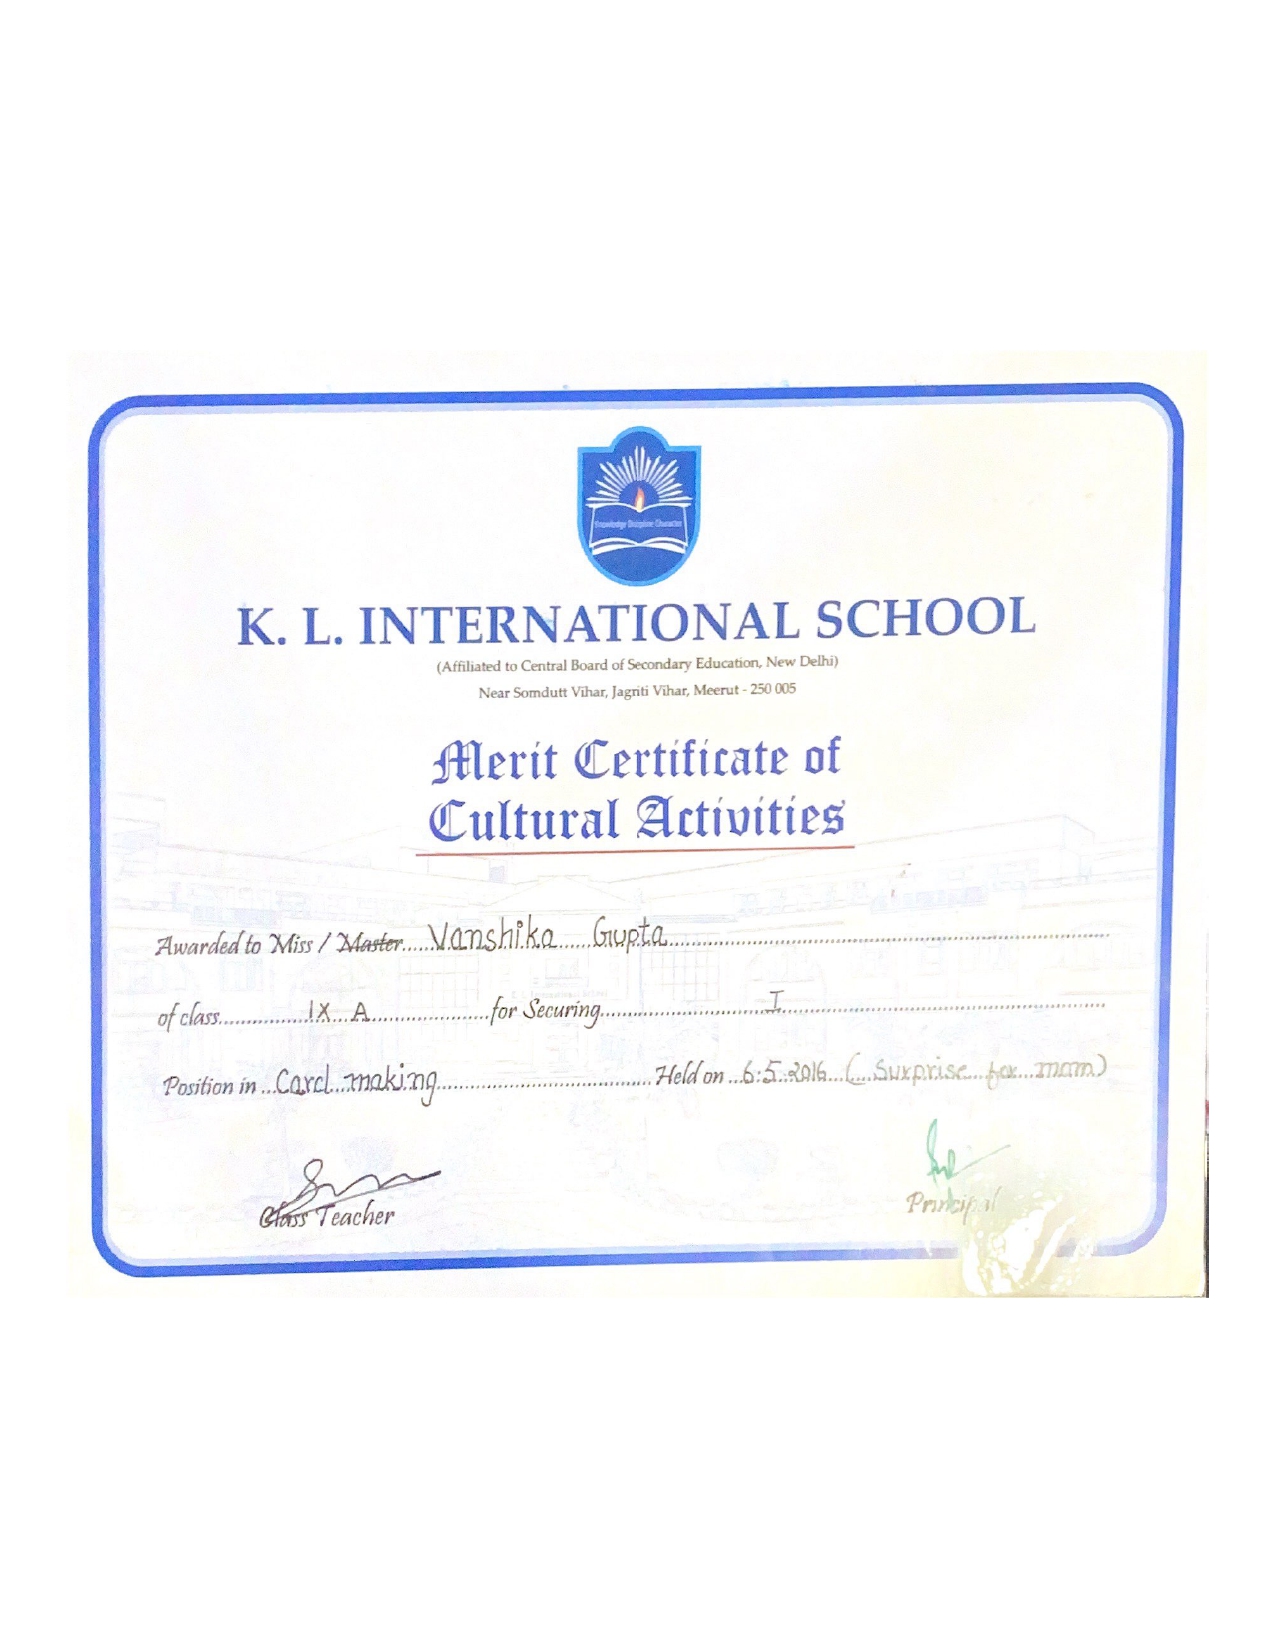 Knowledge Discipline Character
K. L. INTERNATIONAL SCHOOL
(Affiliated to Central Board of Secondary Education, New Delhi)
Near Somdutt Vihar, Jagriti Vihar, Meerut - 250 005
Merit Certificate of
Cultural Activities
Awarded to Miss / Master.....Vanshika Gupta
of class IX A for Securing I
Position in Card making Held on 6.5.2016 (Surprise for mom)
Class Teacher Principal